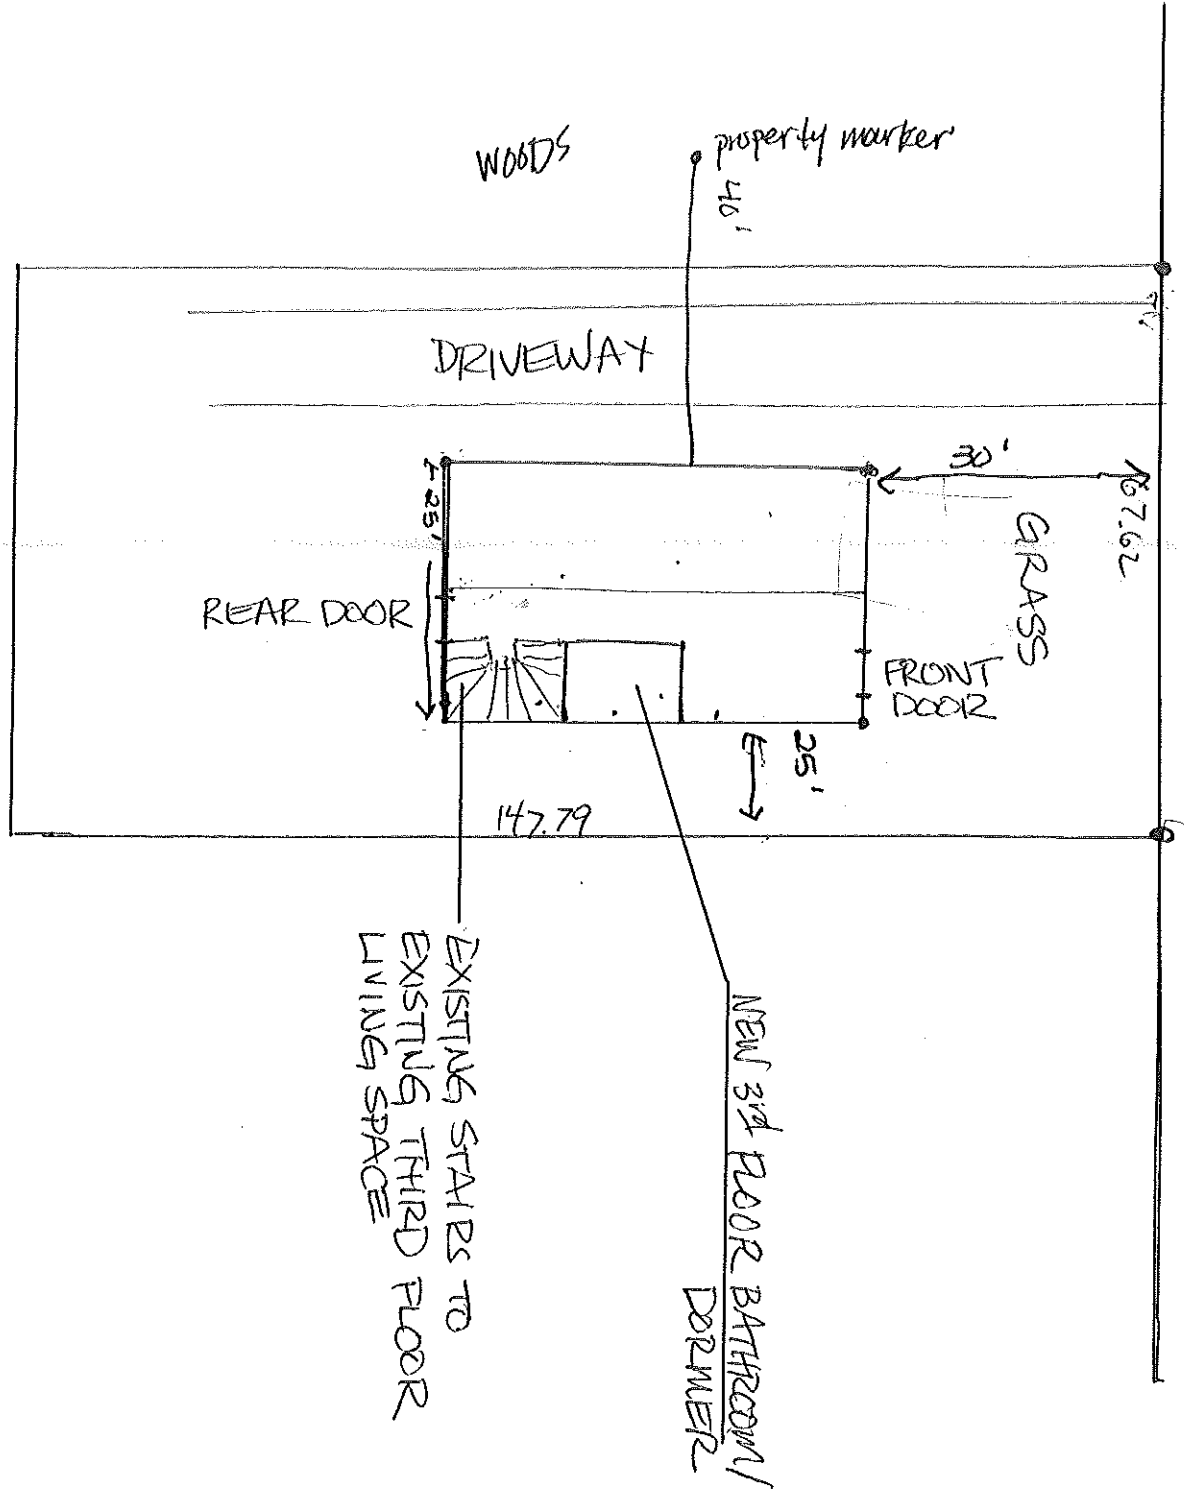 WOODS
property marker
40'
DRIVEWAY
30'
67.62
25'
GRASS
REAR DOOR
FRONT
DOOR
25'
147.79
EXISTING STAIRS TO
EXISTING THIRD FLOOR
LIVING SPACE
NEW 3rd FLOOR BATHROOM/
DORMER